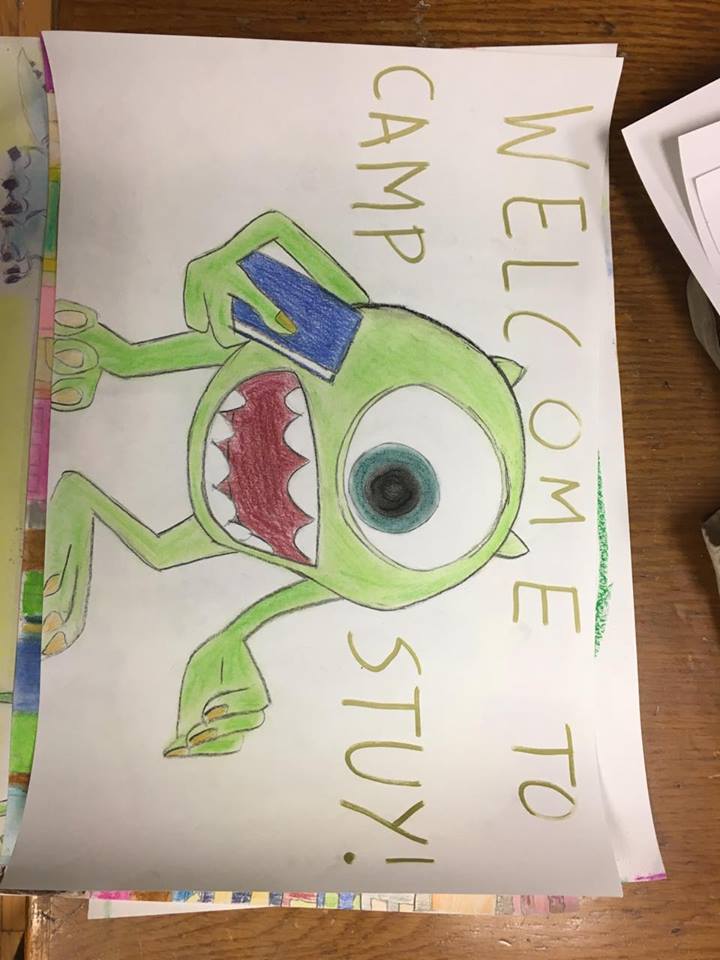 WELCOME TO
CAMP STUY!